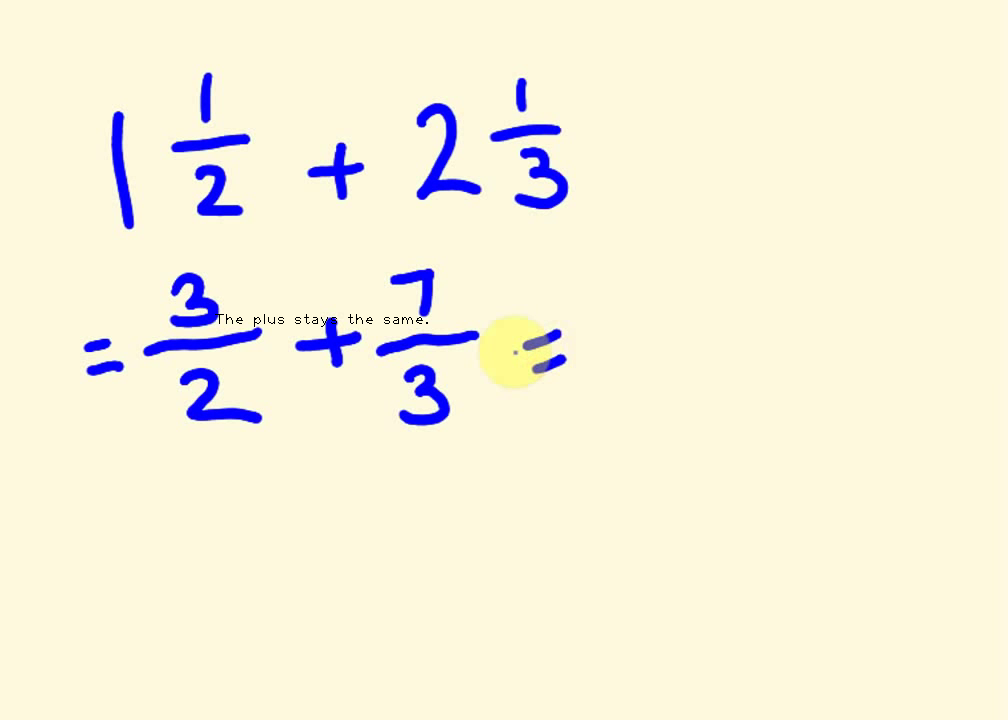 1 1/2 + 2 1/3
= 3/2 + 7/3 =
The plus stays the same.